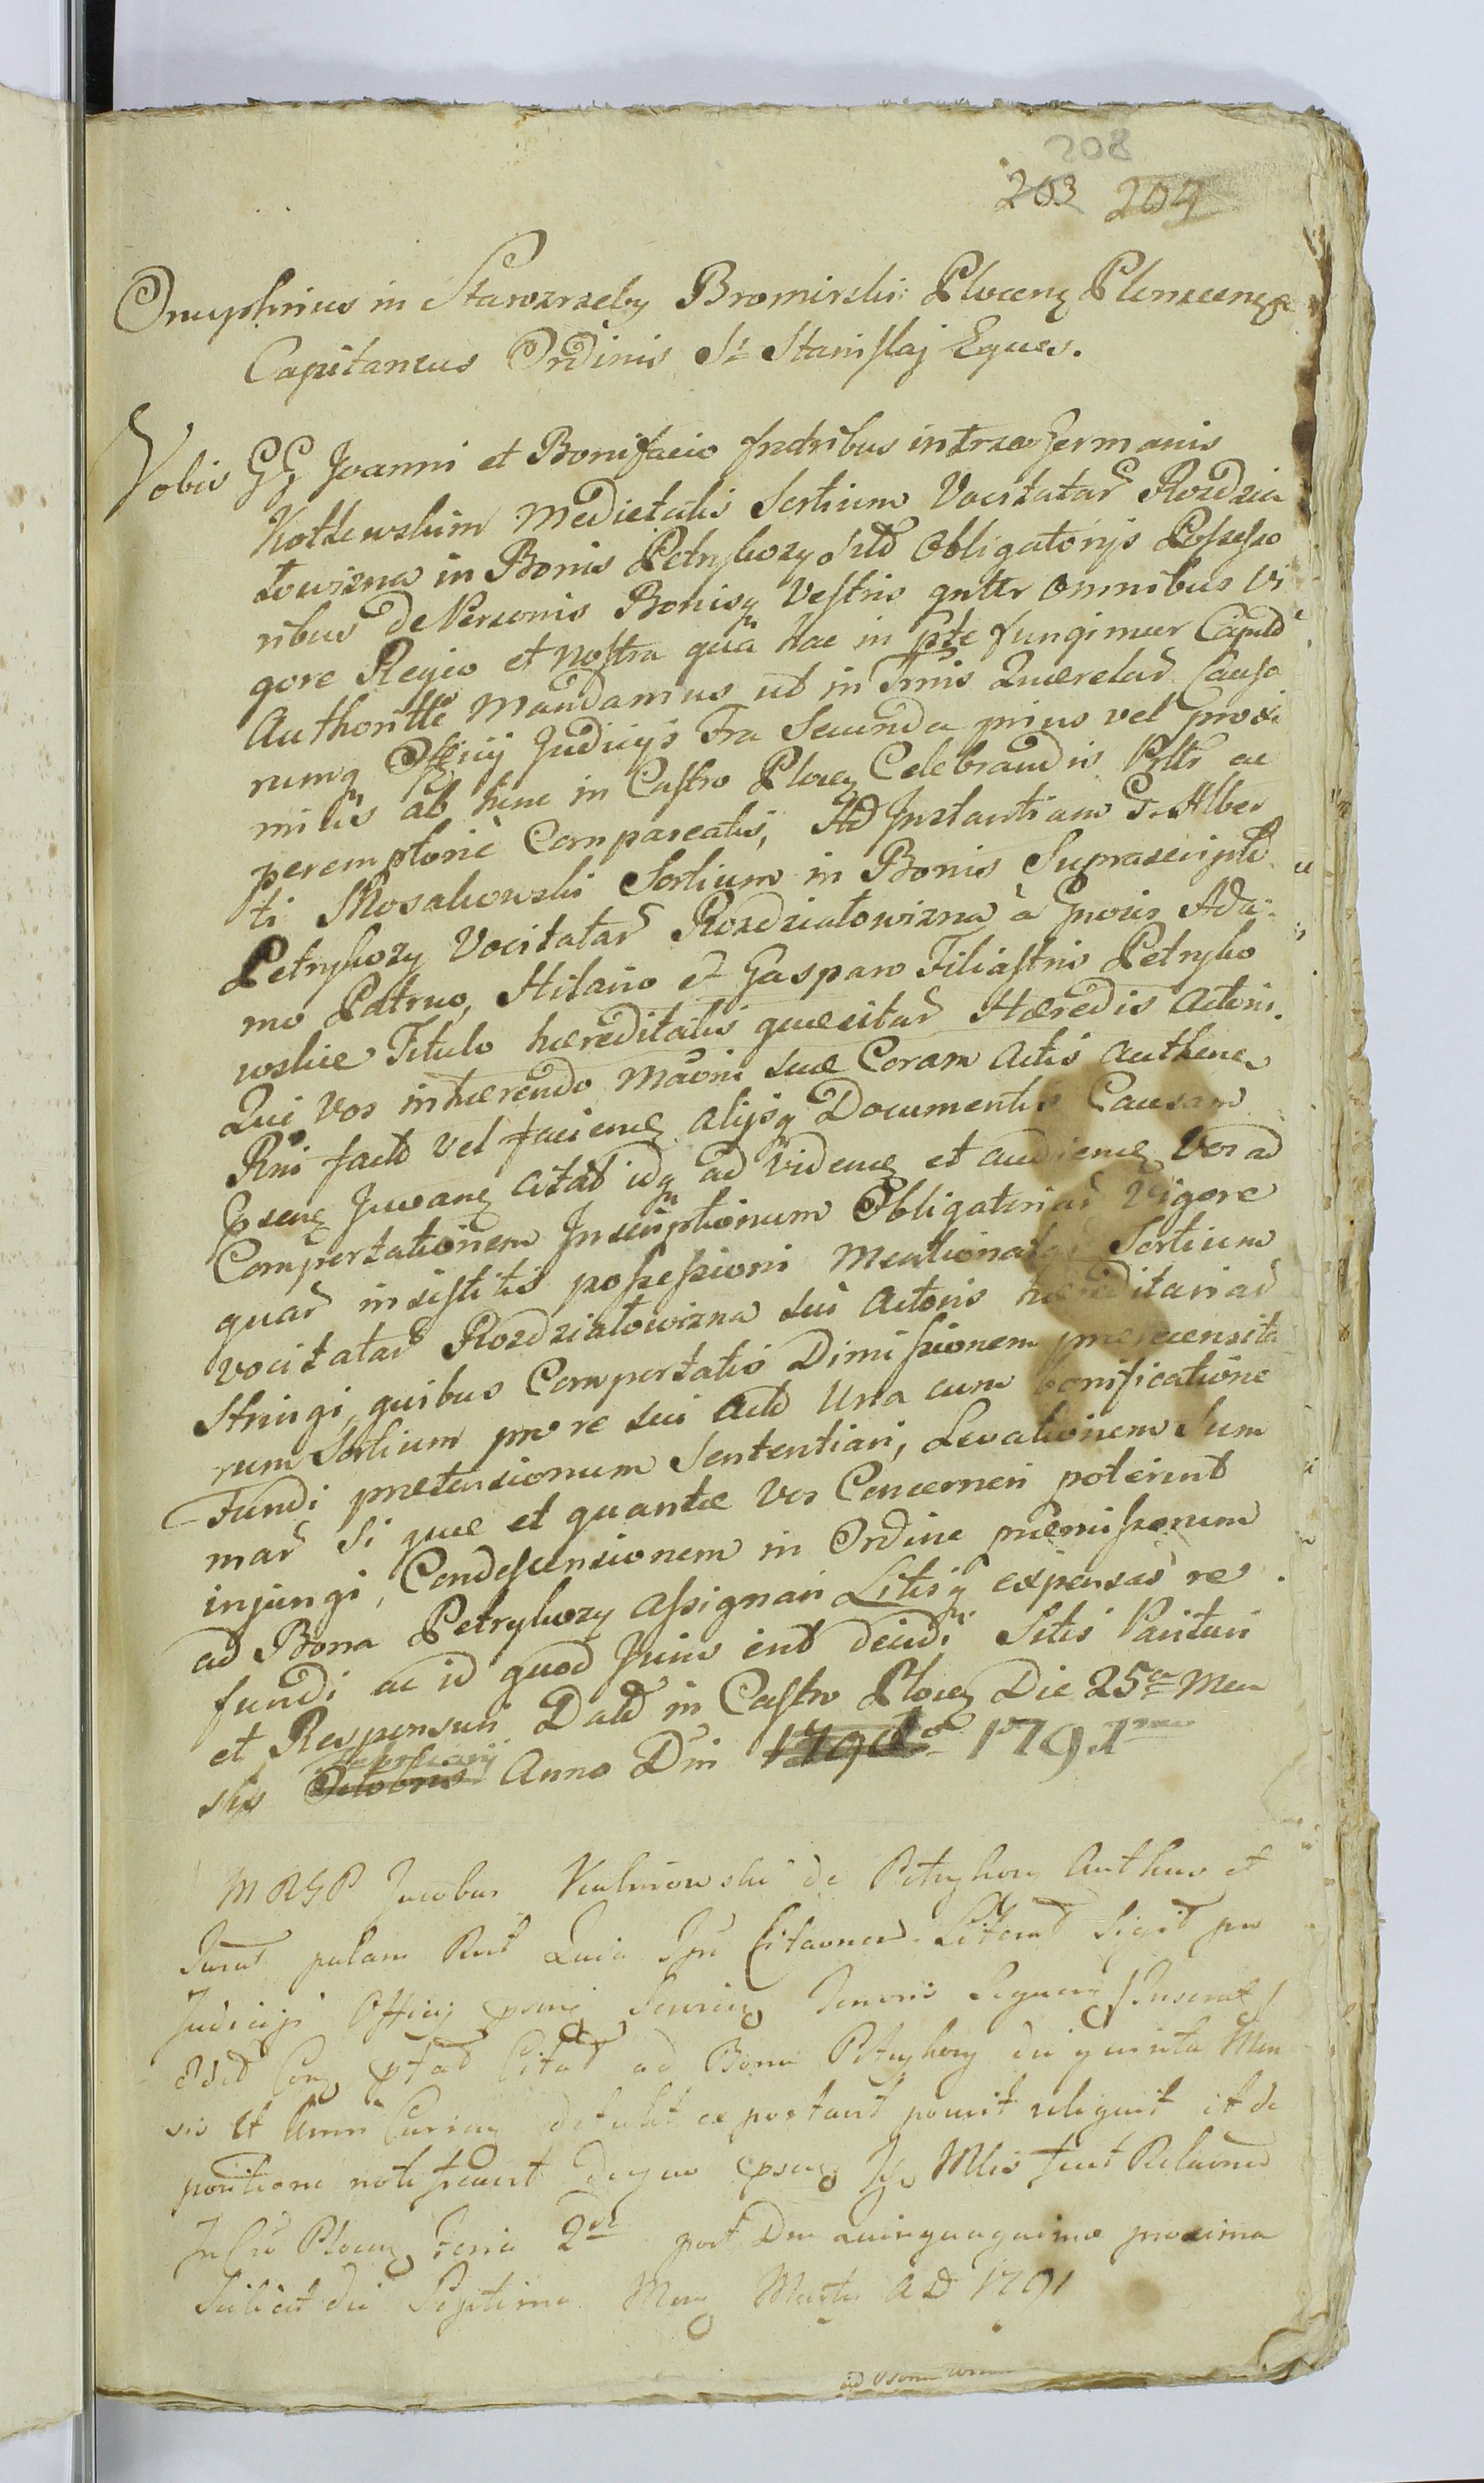 208
203 204
Onuphrius in Starozrzeby Bromirski Plocenʒ Plonscenʒ
Capitaneus Ordinis St Stanislaj Eques.
Vobis GG Joanni et Bonifacio fratribus inter se Germanis
Kotkowskim Medietatis Sortium Vocitatar Rozdzia
łowizna in Bonis Petrykozy sitd Obligatorijs Possesso
ribus de Personis Bonisq Vestris gnltr omnibus Vi
gore Regio et nostra qua hac in pte fungimur Capitd
Authoritte Mandamus ut in Tmis Querelar Causa
rumq Officij Judicijs Fra Secunda prius vel proxi
mius ab hinc in Castro Plocenʒ Celebrandis Psltr ac
peremptorie Compareatis, Ad Instantiam G. Alber
ti Mosakowski Sortium in Bonis Suprascriptd
Petrykozy Vocitatar Rozdziałowizna à Gnosis Ada
mo Patruo, Hilario et Gasparo Filiastris Petryko
wskie Titulo hæreditatis quæsitar Hæredis Actoris.
Qui Vos inhærendo Maoni suæ Coram Actis Authenʒ
Rni factd vel faciendʒ alijsq Documentis Causam
psenʒ Juvanʒ citat idq ad Videndʒ et audiendʒ Vos ad
Comportationem Inscriptionum Obligatoriar Vigore
quar insistitis possessioni Mentionatar Sortium
vocitatar Rozdziałowizna sui Actoris hæreditariar
Stringi, quibus Comportatis Dimissionem prærecensita
rum Sortium pro re sui Actd Una cum bonificatione
Fundi prætensionum Sententiari, Levationem Sum
mar si quæ et quantæ Vos Concernere poterint
injungi, Condescensionem in Ordine præmissorum
ad Bona Petrykozy assignari Litisq expensas re
fundi ac id quod Juris erit decidi. Sitis Parituri
et Responsuri Datd in Castro Plocenʒ Die 25a Men
sis Octobris Februarij Anno Dni 1791mo
M RGP Jacobus de Petrykozy Authus et
Jurat palam Rut Quia Ipse Citaonem Literat Sigit pro
Judicijs Officij psenʒ Tenoris
ad Bona Petrykozy die quinta Men
sis et Anni Curren detulit exportavit posuit reliquit et de
positione notificavit deque psenʒ fecit Relaonem
Plocenʒ Feria 2da post Dm Quinquagesimæ proxima
Scilicet die Septima Menʒ Martij AD 1791